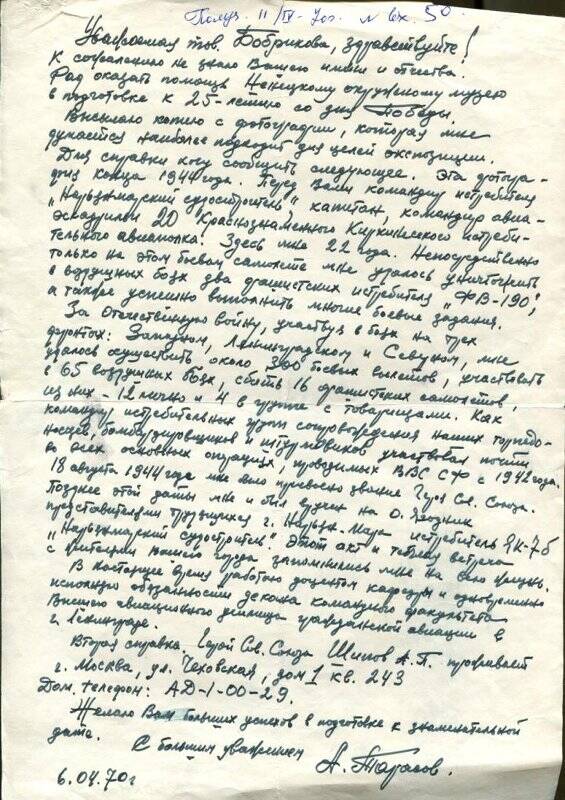 Получ. 11/IV-70г. № вх. 50
Уважаемая тов. Бобрикова, здравствуйте!
К сожалению не знаю Вашего имени и отчества.
Рад оказать помощь Ненецкому окружному музею
в подготовке к 25-летию со дня Победы.
Высылаю копию с фотографии, которая мне
думается наиболее подходит для целей экспозиции.
Для справки могу сообщить следующее. Эта фотогра-
фия конца 1944 года. Перед Вами командир истребителя
"Нарьянмарский судостроитель", капитан, командир авиа-
эскадрильи 20 Краснознаменного Киркинесского истреби-
тельного авиаполка. Здесь мне 22 года. Непосредственно
только на этом боевом самолете мне удалось уничтожить
в воздушных боях два фашистских истребителя "ФВ-190",
а также успешно выполнить многие боевые задания.
За Отечественную войну, участвуя в боях на трех
фронтах: Западном, Ленинградском и Северном, мне
удалось осуществить около 300 боевых вылетов, участвовать
в 65 воздушных боях, сбить 16 фашистских самолетов,
из них - 12 лично и 4 в группе с товарищами. Как
командир истребительных групп сопровождения наших торпедо-
носцев, бомбардировщиков и штурмовиков участвовал почти
во всех основных операциях, проводимых ВВС СФ с 1942 года.
18 августа 1944 года мне было присвоено звание Героя Св. Союза.
Позднее этой даты мне и был вручен на о. Ягодник
представителями трудящихся г. Нарьян-Мара истребитель ЯК-7б
"Нарьянмарский судостроитель". Этот акт и теплая встреча
с жителями вашего города запомнились мне на всю жизнь.
В настоящее время работаю доцентом кафедры и одновременно
исполняю обязанности декана командного факультета
Высшего авиационного училища гражданской авиации в
г. Ленинграде.
Вторая справка. Герой Св. Союза Шипов А.П. проживает
г. Москва, ул. Чеховская, дом 1 кв. 243
Дом. телефон: АД-1-00-29.
Желаю Вам больших успехов в подготовке к знаменательной
дате.
С большим уважением
А. Тарасов.
6.04.70г